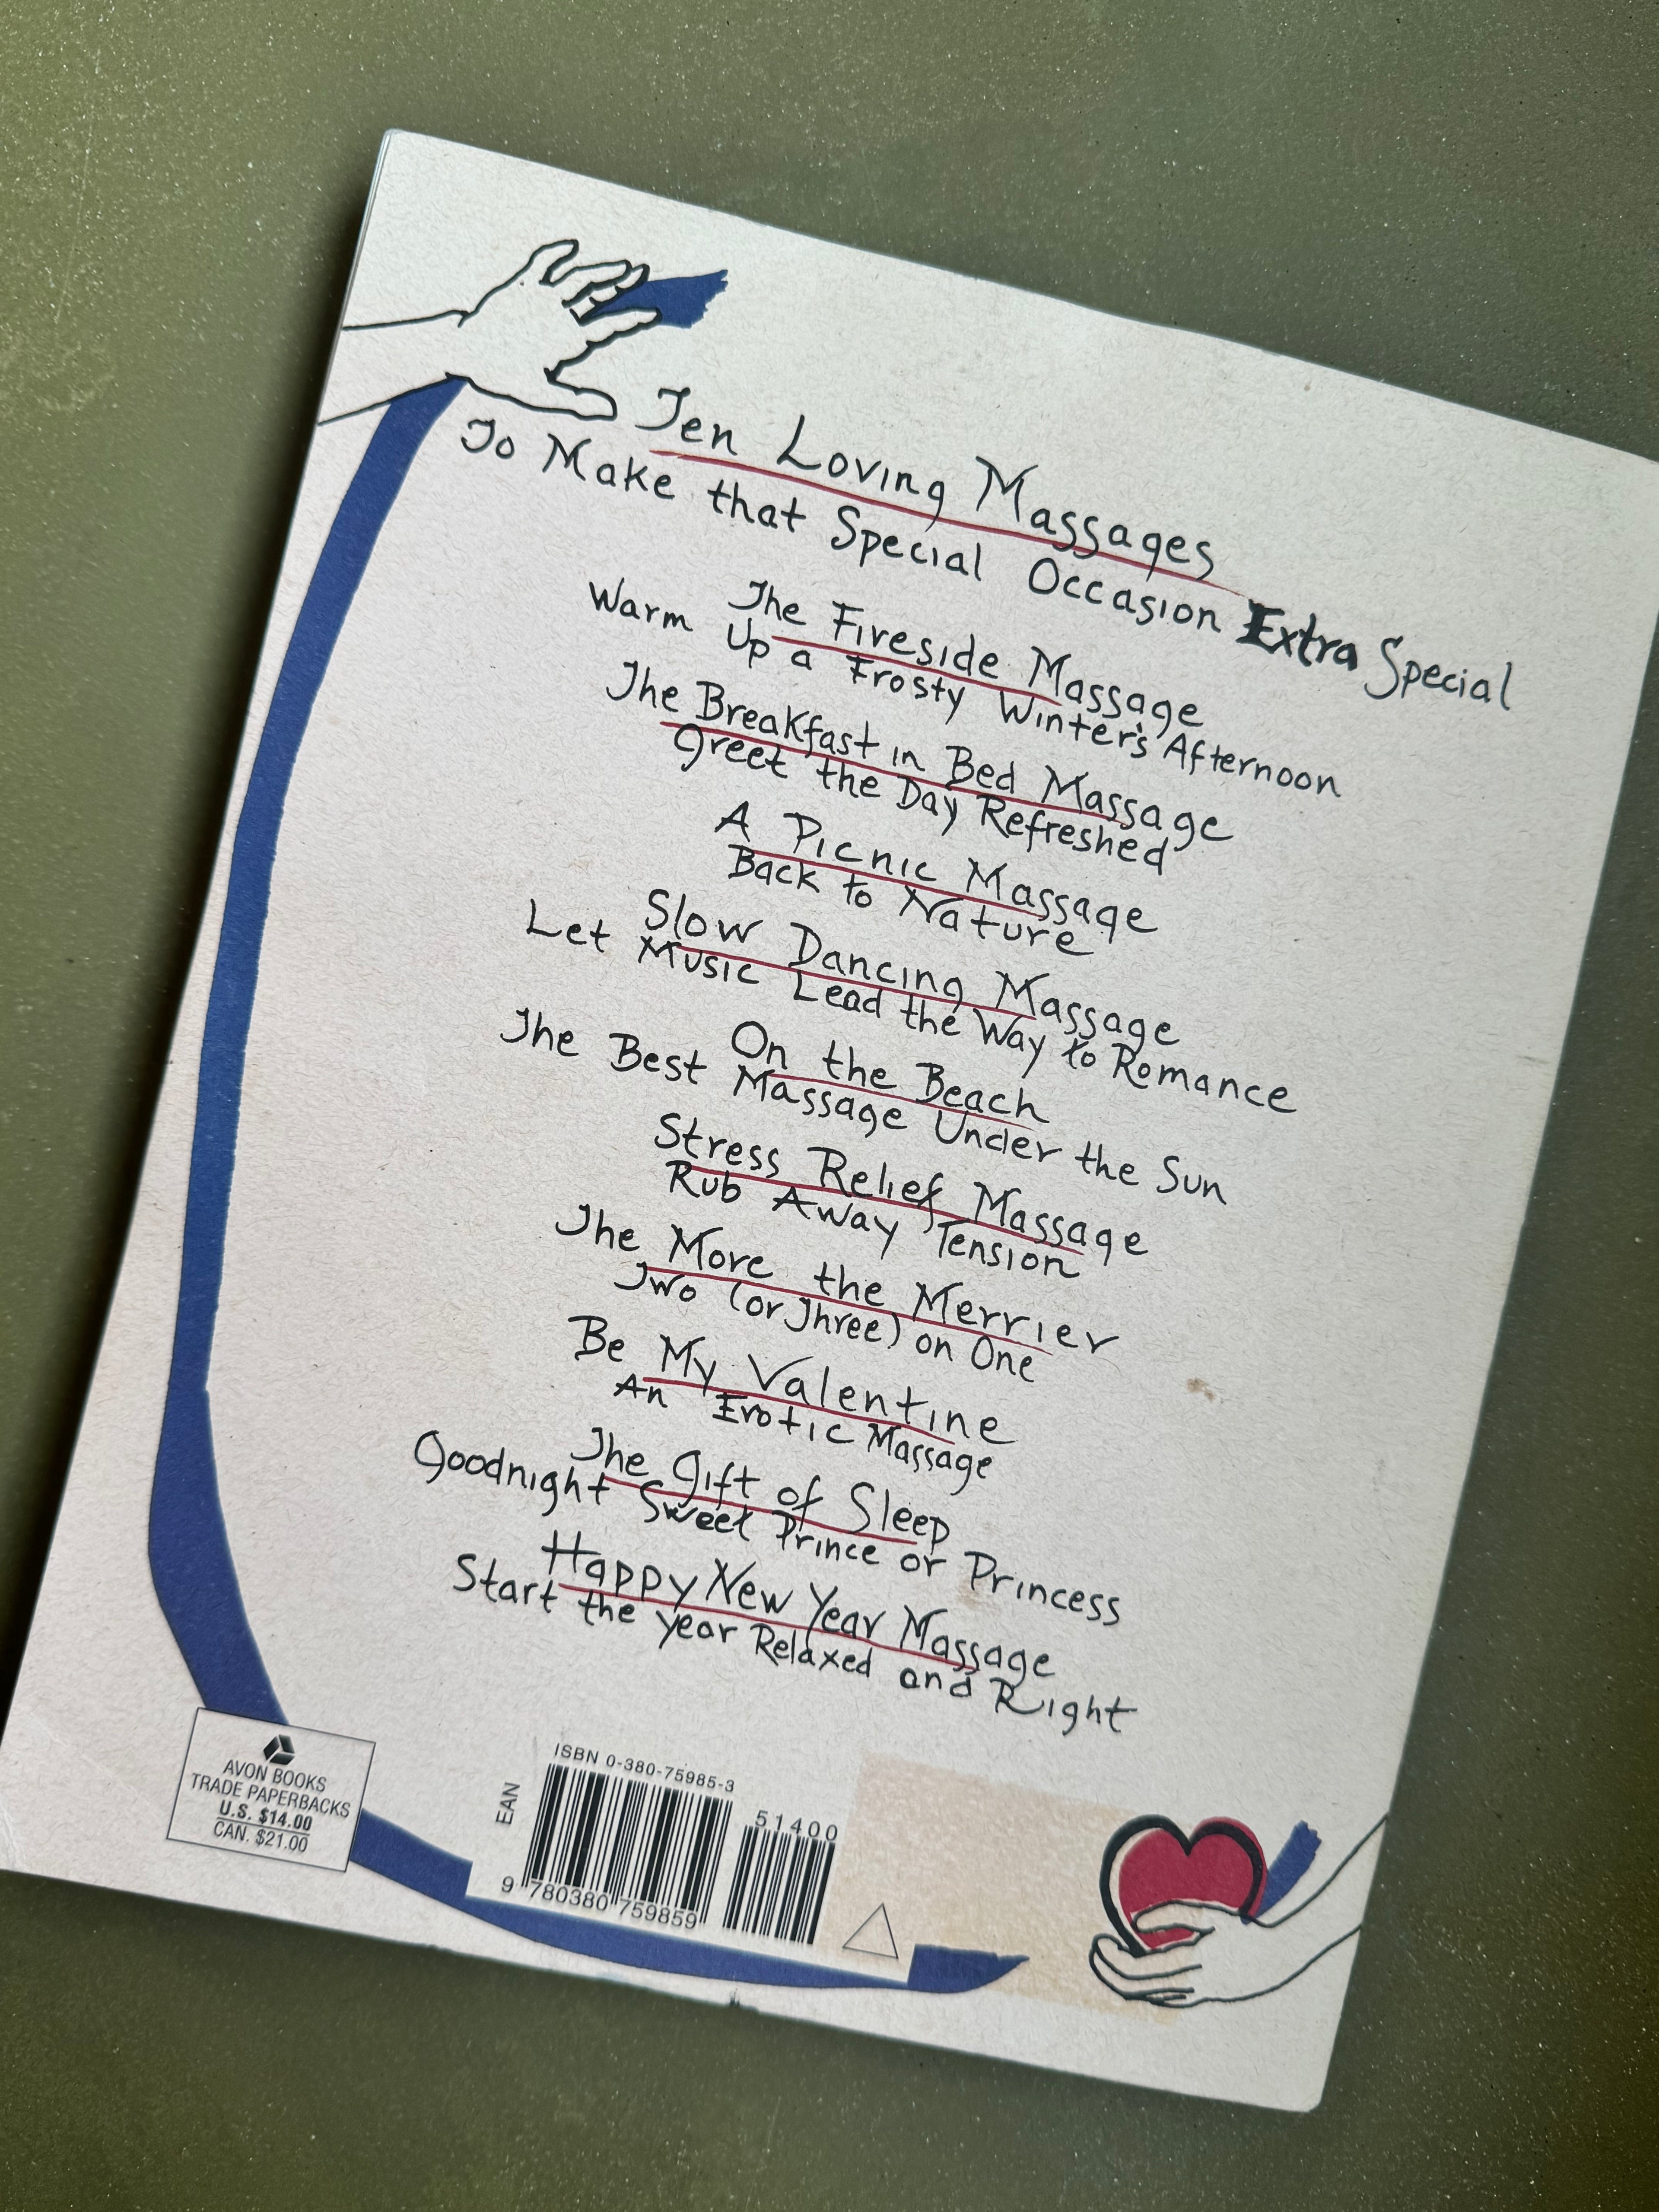 Ten Loving Massages
To Make that Special Occasion Extra Special
The Fireside Massage
Warm Up a Frosty Winter's Afternoon
The Breakfast in Bed Massage
Greet the Day Refreshed
A Picnic Massage
Back to Nature
Slow Dancing Massage
Let Music Lead the Way to Romance
On the Beach
The Best Massage Under the Sun
Stress Relief Massage
Rub Away Tension
The More the Merrier
Two (or Three) on One
Be My Valentine
An Erotic Massage
The Gift of Sleep
Goodnight Sweet Prince or Princess
Happy New Year Massage
Start the year Relaxed and Right
AVON BOOKS
TRADE PAPERBACKS
U.S. $14.00
CAN. $21.00
ISBN 0-380-75985-3
EAN
51400
9 780380 759859